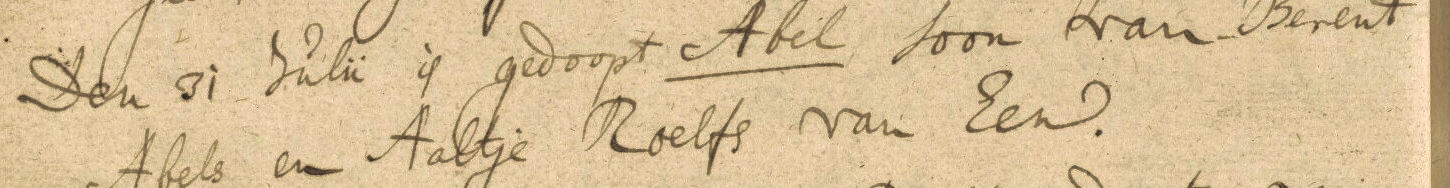 Den 31 Julii is gedoopt Abel soon van Berent
Abels en Aaltje Roelfs van Een.